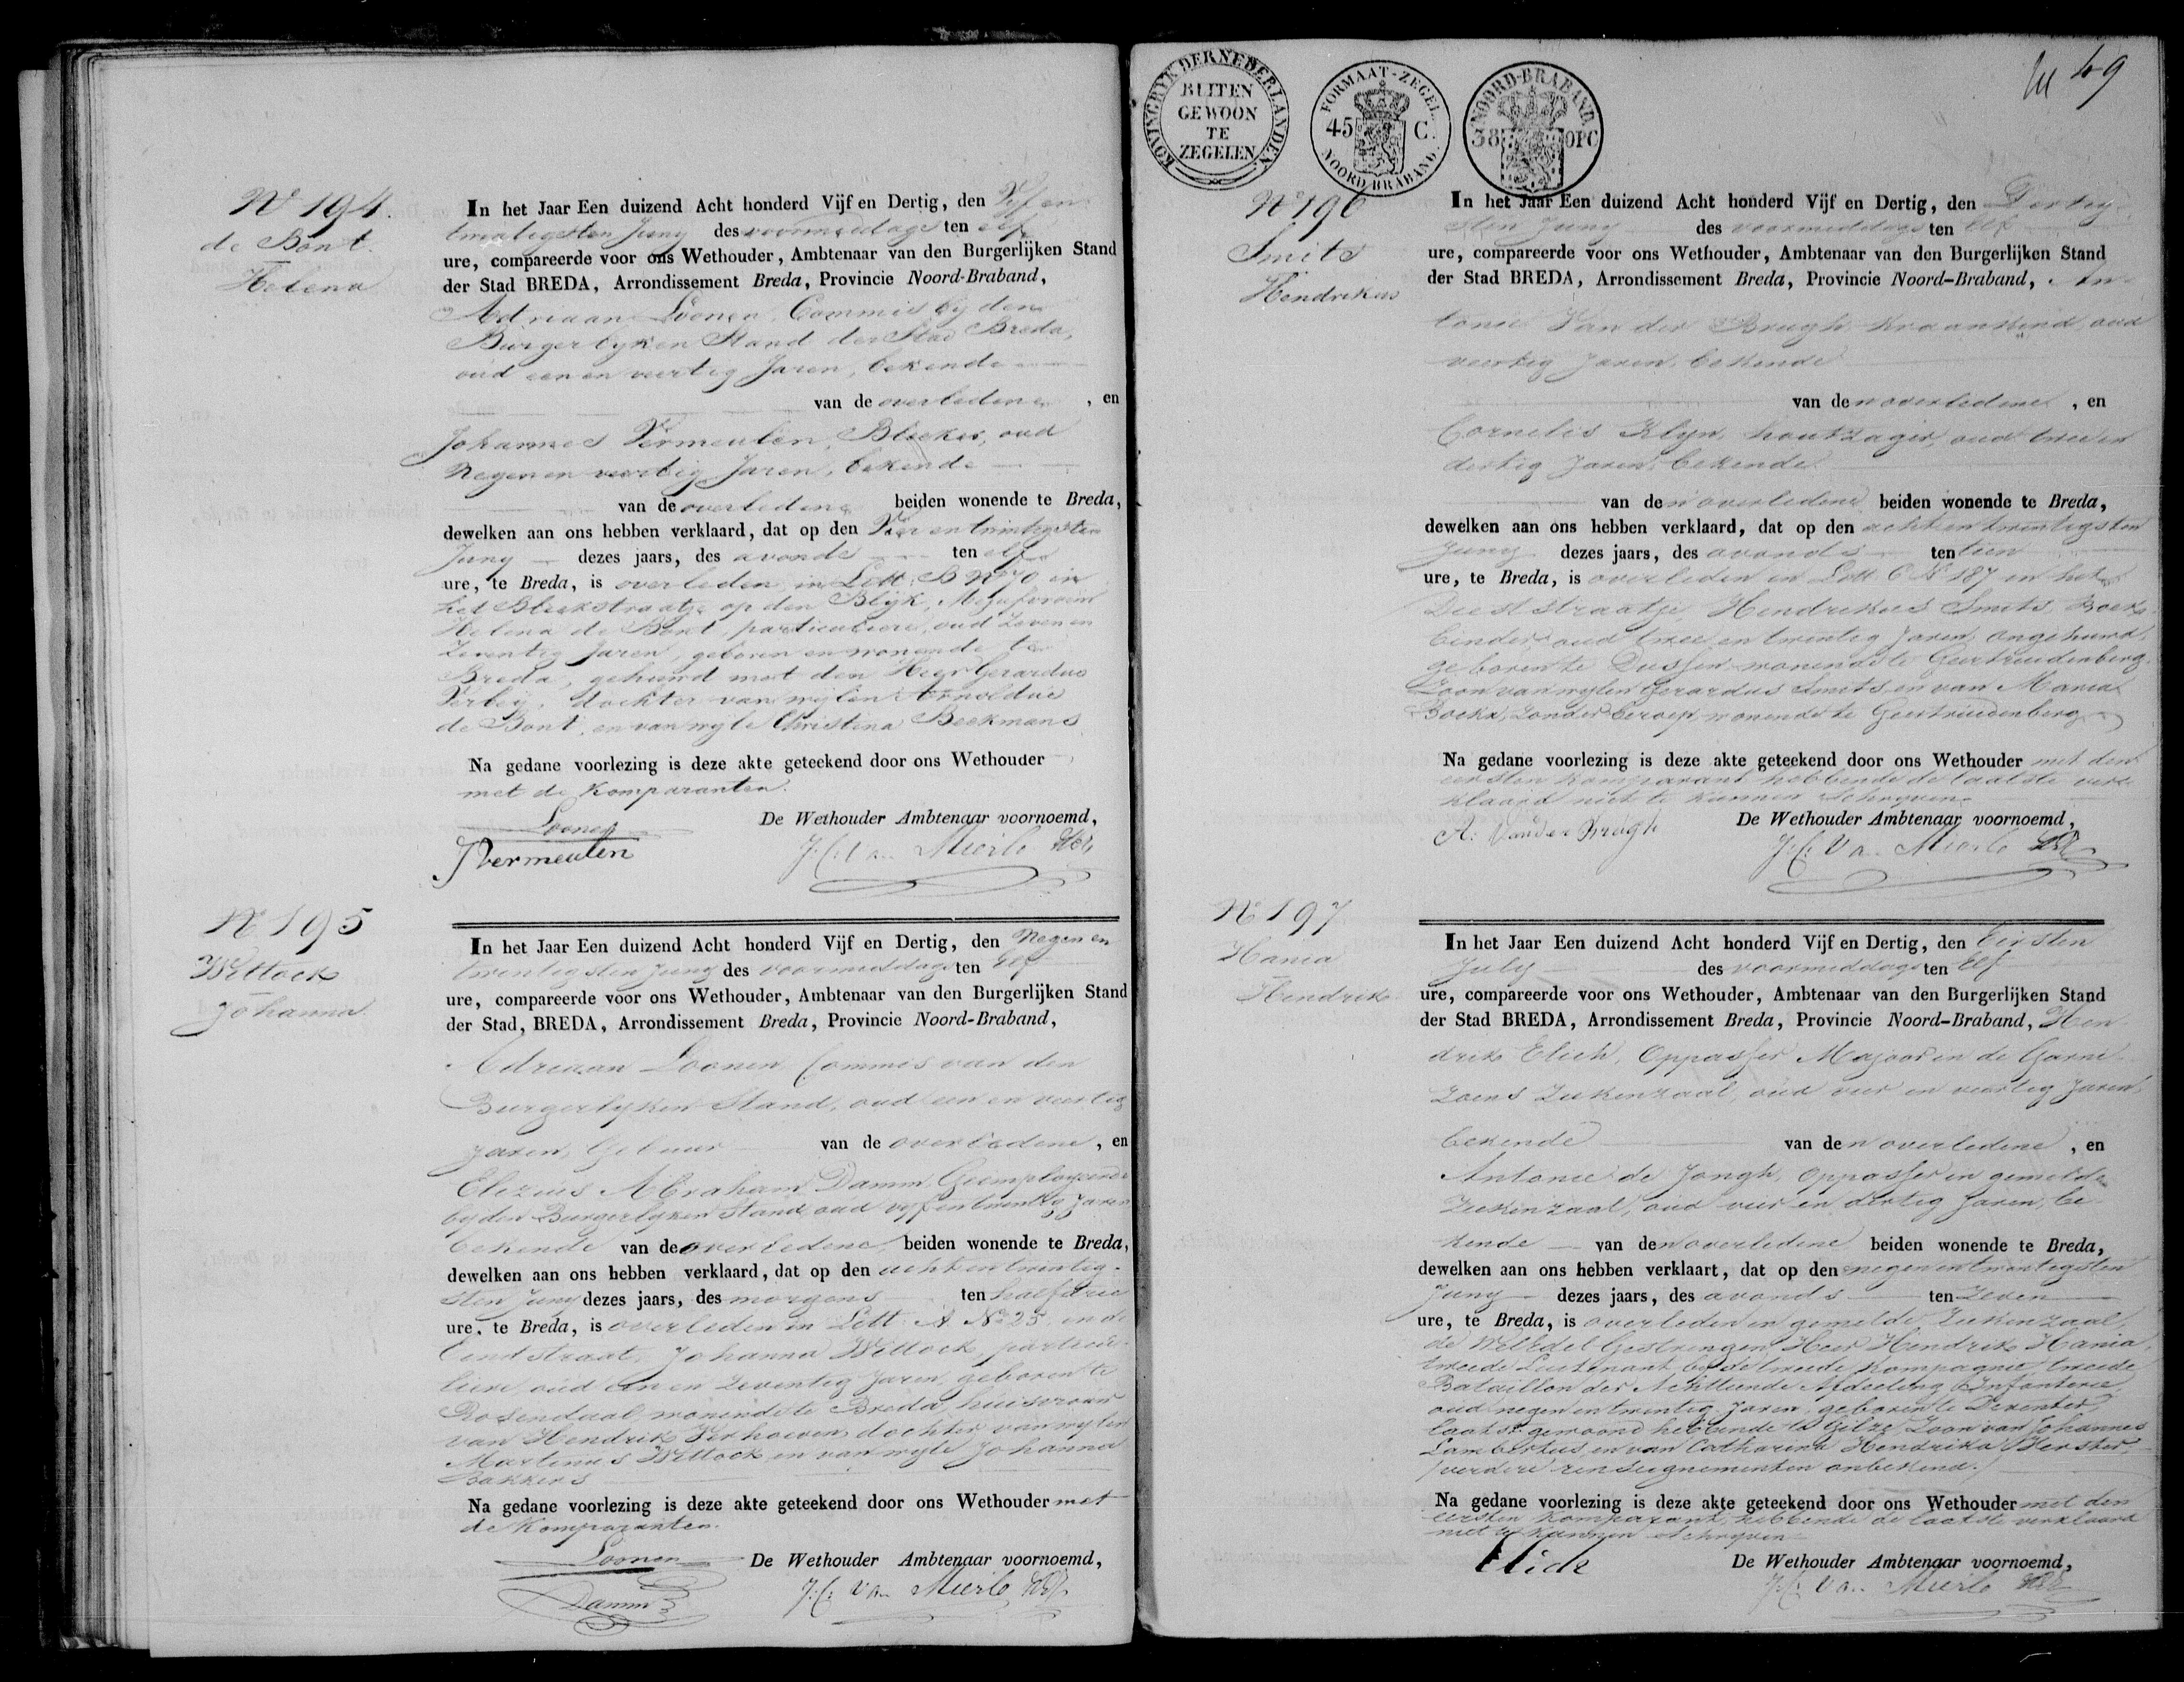 N° 194.
de Bont
Helena
In het Jaar Een duizend Acht honderd Vijf en Dertig, den Vyf en
twintigsten Juny des voormiddags ten elf
ure, compareerde voor ons Wethouder, Ambtenaar van den Burgerlijken Stand
der Stad BREDA, Arrondissement Breda, Provincie Noord-Braband,
Adriaan Loonen, Commis by den
Burgerlyken Stand der Stad Breda,
oud een en veertig Jaren, bekende
van de overledene, en
Johannes Vermeulen, Bleeker, oud
Negen en veertig Jaren, bekende
van de overledene beiden wonende te Breda,
dewelken aan ons hebben verklaard, dat op den Vier en twintigsten
Juny dezes jaars, des avonds ten elf
ure, te Breda, is overleden in Lett. B N° 70 in
het Bleekstraatje op den Blyk, Mejufvrouw
Helena de Bont, particuliere, oud Zeven en
Zeventig Jaren, geboren en wonende te
Breda, gehuwd met den Heer Gerardus
Verbey, dochter van wylen Arnoldus
de Bont, en van wyle Christina Beekmans
Na gedane voorlezing is deze akte geteekend door ons Wethouder
met de Komparanten.
De Wethouder Ambtenaar voornoemd,
Loonen
JVermeulen
J.C. Van Mierlo
N° 195
Wittock
Johanna
In het Jaar Een duizend Acht honderd Vijf en Dertig, den Negen en
twintigsten Juny des voormiddags ten Elf
ure, compareerde voor ons Wethouder, Ambtenaar van den Burgerlijken Stand
der Stad, BREDA, Arrondissement Breda, Provincie Noord-Braband,
Adriaan Loonen Commis van den
Burgerlyken Stand, oud een en veertig
Jaren, Gebuur van de overledene, en
Elezius Abraham Damm, Geemployeerde
by den Burgerlyken Stand oud vyf en twintig Jaren
bekende van de overledene, beiden wonende te Breda,
dewelken aan ons hebben verklaard, dat op den acht en twintig-
sten Juny dezes jaars, des morgens ten half drie
ure, te Breda, is overleden in Lett. A N° 25 in de
Eindstraat, Johanna Wittock, particu-
liere, oud een en Zeventig Jaren, geboren te
Rosendaal, wonende te Breda, huisvrouw
van Hendrik Verhoeven, dochter van wylen
Martinus Wittock en van wyle Johanna
Bakkers
Na gedane voorlezing is deze akte geteekend door ons Wethouder met
de Komparanten.
Loonen
De Wethouder Ambtenaar voornoemd,
Damm
J.C. Van Mierlo
KONINGRYK DER NEDERLANDEN.
BUITEN
GEWOON
TE
ZEGELEN
FORMAAT-ZEGEL.
45 C.
NOORD BRABAND.
NOORD-BRABAND.
38 OPC
49
N° 196
Smits
Hendrikus
In het Jaar Een duizend Acht honderd Vijf en Dertig, den Dertig-
sten Juny des voormiddags ten Elf
ure, compareerde voor ons Wethouder, Ambtenaar van den Burgerlijken Stand
der Stad BREDA, Arrondissement Breda, Provincie Noord-Braband, An-
tonie Van der Brugh, Kraankind, oud
veertig Jaren, bekende
van den overledene, en
Cornelis Klyn, houtzager, oud twee en
dertig Jaren, bekende
van den overledene beiden wonende te Breda,
dewelken aan ons hebben verklaard, dat op den acht en twintigsten
Juny dezes jaars, des avonds ten tien
ure, te Breda, is overleden in Lett. C N° 187 in het
Deeststraatje, Hendrikus Smits, Boek-
binder, oud twee en twintig Jaren, ongehuwd,
geboren te Dussen wonende te Geertruidenberg.
Zoon van wylen Gerardus Smits, en van Maria
Bockx, Zonder beroep, wonende te Geertruidenberg
Na gedane voorlezing is deze akte geteekend door ons Wethouder met den
eersten Komparant hebbende de laatste ver-
klaard niet te kunnen schryven.
De Wethouder Ambtenaar voornoemd,
A: Van der Brugh
J.C. Van Mierlo
N° 197
Hania
Hendrik
In het Jaar Een duizend Acht honderd Vijf en Dertig, den Eersten
July des voormiddags ten Elf
ure, compareerde voor ons Wethouder, Ambtenaar van den Burgerlijken Stand
der Stad BREDA, Arrondissement Breda, Provincie Noord-Braband, Hen-
drik Elich, Oppasser Majoor in de Garni-
Zoens Ziekenzaal, oud vier en veertig Jaren,
bekende van den overledene, en
Antonie de Jongh, Oppasser in gemelde
Ziekenzaal, oud vier en dertig Jaren, be-
kende van den overledene beiden wonende te Breda,
dewelken aan ons hebben verklaart, dat op den negen en twintigsten
Juny dezes jaars, des avonds ten Zeven
ure, te Breda, is overleden in gemelde Ziekenzaal,
de WelEdel Gestrengen Heer Hendrik Hania,
tweede Luitenant by de tweede Kompagnie, tweede
Bataillon der Achttiende Afdeeling Infanterie
oud negen en twintig Jaren, geboren te Deventer,
laatst gewoond hebbende te Gilze, Zoon van Johannes
Lambertus, en van Catharina Hendrika Herster,
(verdere renseignementen onbekend.)
Na gedane voorlezing is deze akte geteekend door ons Wethouder met den
eersten Komparant, hebbende de laatste verklaard
niet te kunnen schryven
De Wethouder Ambtenaar voornoemd,
J.C. Van Mierlo